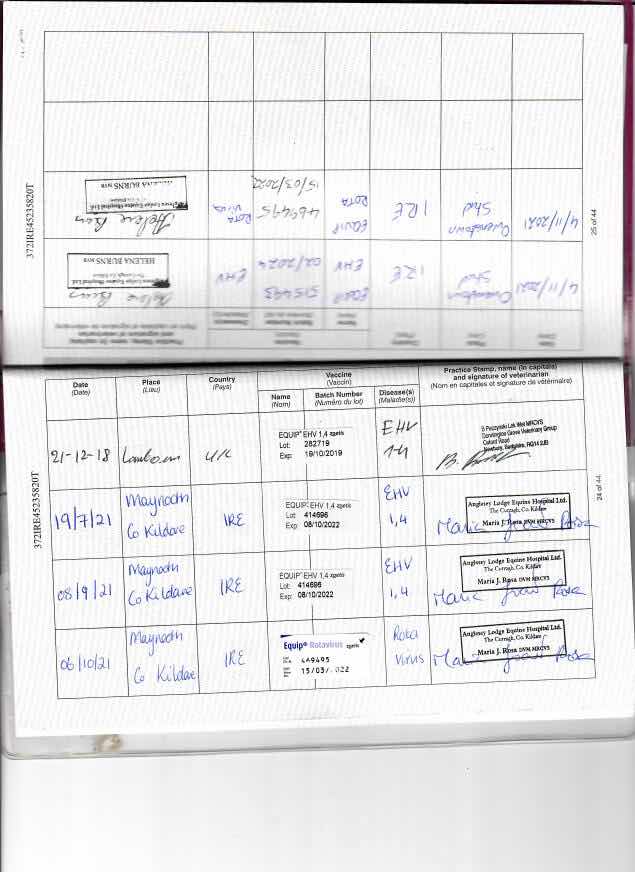 4/11/2021 Stud IRE EQUIP ROTA 469495 15/03/2022 ROTA Virus
HELENA BURNS MVB
372IRE45235820T
25 of 44
4/11/2021 Stud IRE EQUIP EHV 515493 02/2024 EHV
HELENA BURNS MVB
Date
(Date)
Place
(Lieu)
Country
(Pays)
Vaccine
(Vaccin)
Name
(Nom)
Batch Number
(Numéro du lot)
Disease(s)
(Maladie(s))
Practice Stamp, name (in capitals)
and signature of veterinarian
(Nom en capitales et signature de vétérinaire)
372IRE45235820T
24 of 44
21-12-18 Lambourn UK
EQUIP® EHV 1,4 zoetis
Lot: 282719
Exp: 19/10/2019
EHV
1-4
Donnington Grove Veterinary Group
Oxford Road
Newbury, Berkshire, RG14 2JB
19/7/21
Maynooth
Co Kildare
IRE
EQUIP® EHV 1,4 zoetis
Lot: 414696
Exp: 08/10/2022
EHV
1,4
Anglesey Lodge Equine Hospital Ltd.
The Curragh, Co. Kildare
Maria J. Rosa DVM MRCVS
08/9/21
Maynooth
Co Kildare
IRE
EQUIP® EHV 1,4 zoetis
Lot: 414696
Exp: 08/10/2022
EHV
1,4
Anglesey Lodge Equine Hospital Ltd.
The Curragh, Co. Kildare
Maria J. Rosa DVM MRCVS
06/10/21
Maynooth
Co Kildare
IRE
Equip® Rotavirus zoetis
469495
15/03/2022
Rota
Virus
Anglesey Lodge Equine Hospital Ltd.
The Curragh, Co. Kildare
Maria J. Rosa DVM MRCVS